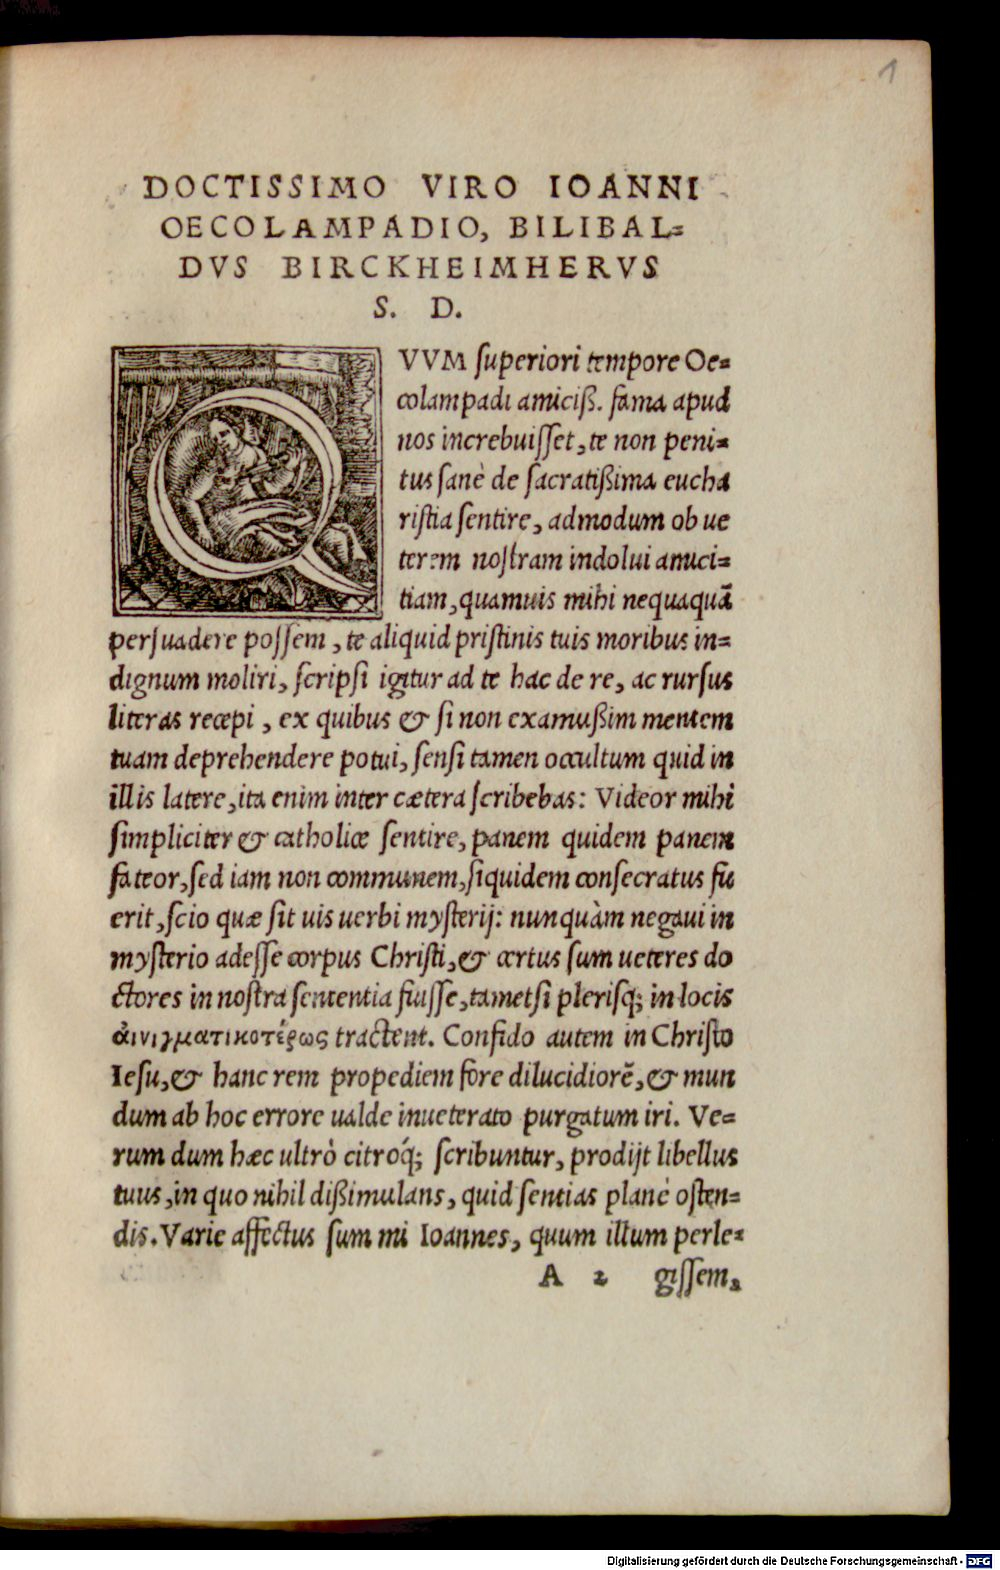 1
DOCTISSIMO VIRO IOANNI
OECOLAMPADIO, BILIBAL=
DVS BIRCKHEIMHERVS
S. D.
QVVM ſuperiori tempore Oe=
colampadi amiciß. fama apud
nos increbuiſſet, te non peni=
tus ſanè de ſacratißima eucha
riſtia ſentire, admodum ob ue
terem noſtram indolui amici=
tiam, quamuis mihi nequaquã
perſuadere poſſem, te aliquid priſtinis tuis moribus in=
dignum moliri, ſcripſi igitur ad te hac de re, ac rurſus
literas recepi, ex quibus & ſi non examußim mentem
tuam deprehendere potui, ſenſi tamen occultum quid in
illis latere, ita enim inter cætera ſcribebas: Videor mihi
ſimpliciter & catholicæ ſentire, panem quidem panem
fateor, ſed iam non communem, ſiquidem conſecratus fu
erit, ſcio quæ ſit uis uerbi myſterij: nunquàm negaui in
myſterio adeſſe corpus Chriſti, & certus ſum ueteres do
ctores in noſtra ſententia fuiſſe, tametſi pleriſq; in locis
ἀινιγματικοτέρως tractent. Confido autem in Chriſto
Ieſu, & hanc rem propediem fore dilucidiorẽ, & mun
dum ab hoc errore ualde inueterato purgatum iri. Ve=
rum dum hæc ultrò citróq́; ſcribuntur, prodijt libellus
tuus, in quo nihil dißimulans, quid ſentias planè oſten=
dis. Varie affectus ſum mi Ioannes, quum illum perle=
A 2 giſſem,
Digitalisierung gefördert durch die Deutsche Forschungsgemeinschaft - DFG